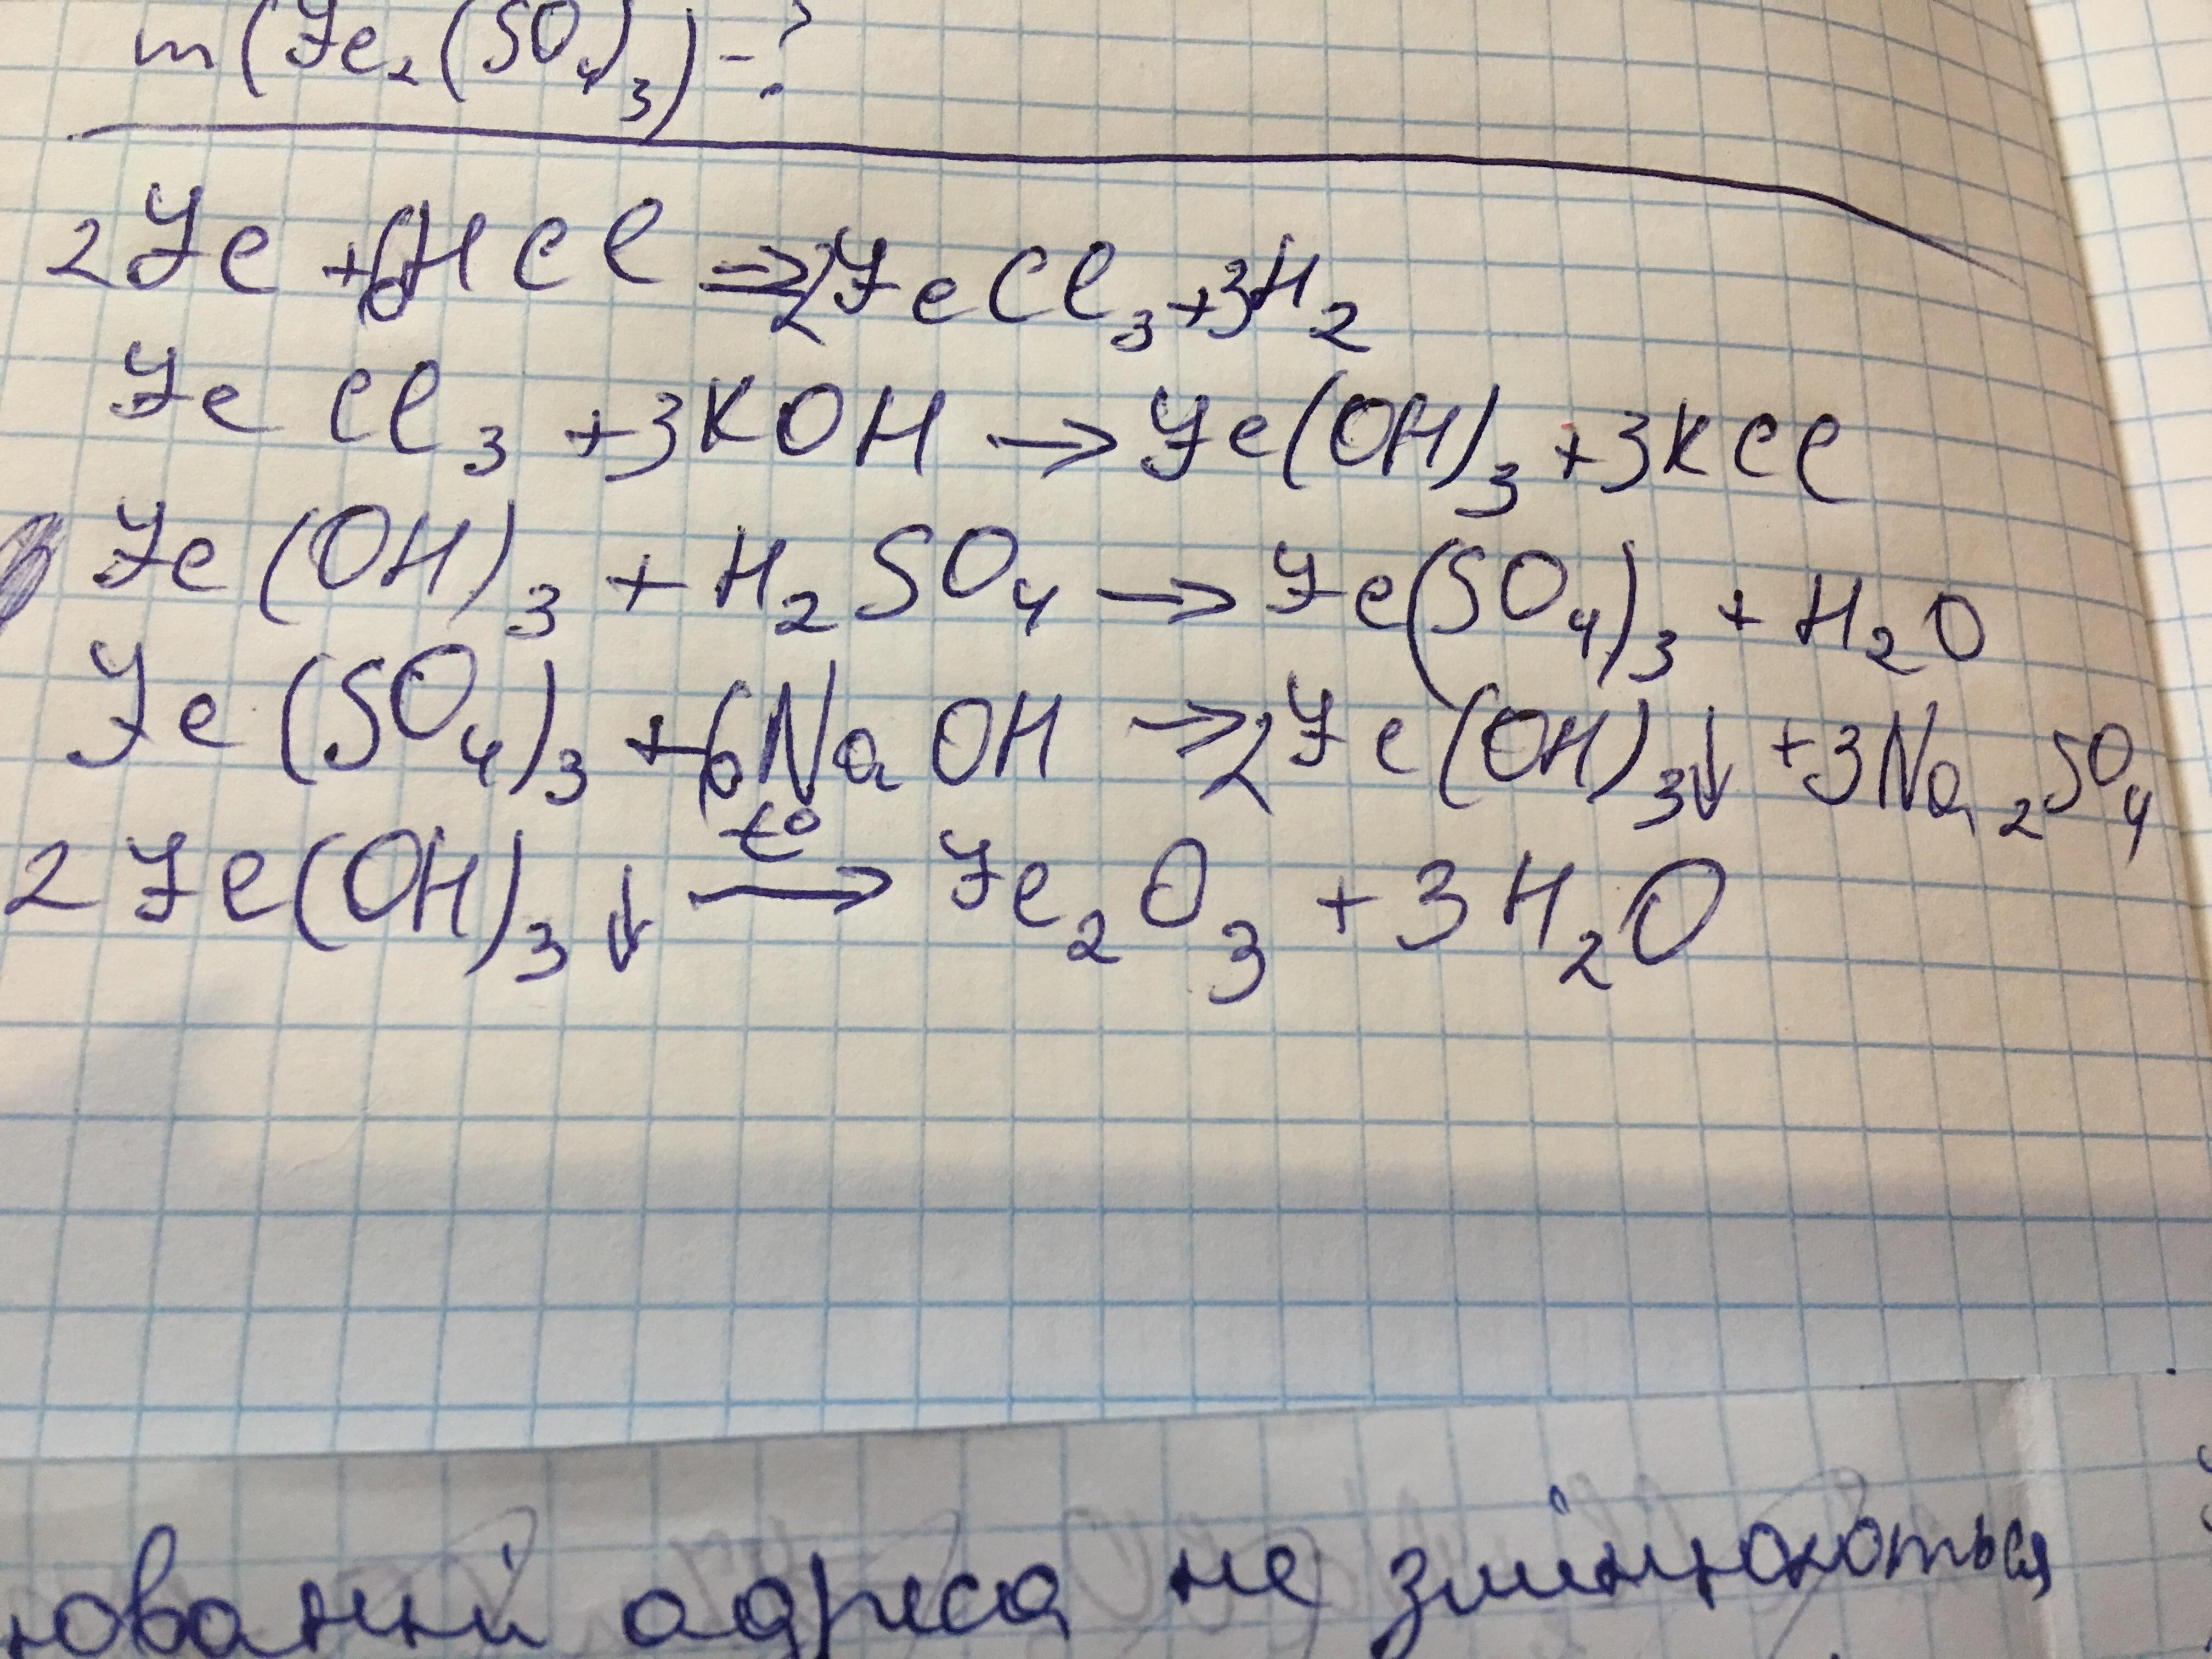 m(Fe₂(SO₄)₃) - ?
2Fe + 6HCl → 2FeCl₃ + 3H₂
FeCl₃ + 3KOH → Fe(OH)₃ + 3KCl
Fe(OH)₃ + H₂SO₄ → Fe(SO₄)₃ + H₂O
Fe(SO₄)₃ + 6NaOH → 2Fe(OH)₃↓ + 3Na₂SO₄
2Fe(OH)₃↓ t° → Fe₂O₃ + 3H₂O
адреса не змінюються